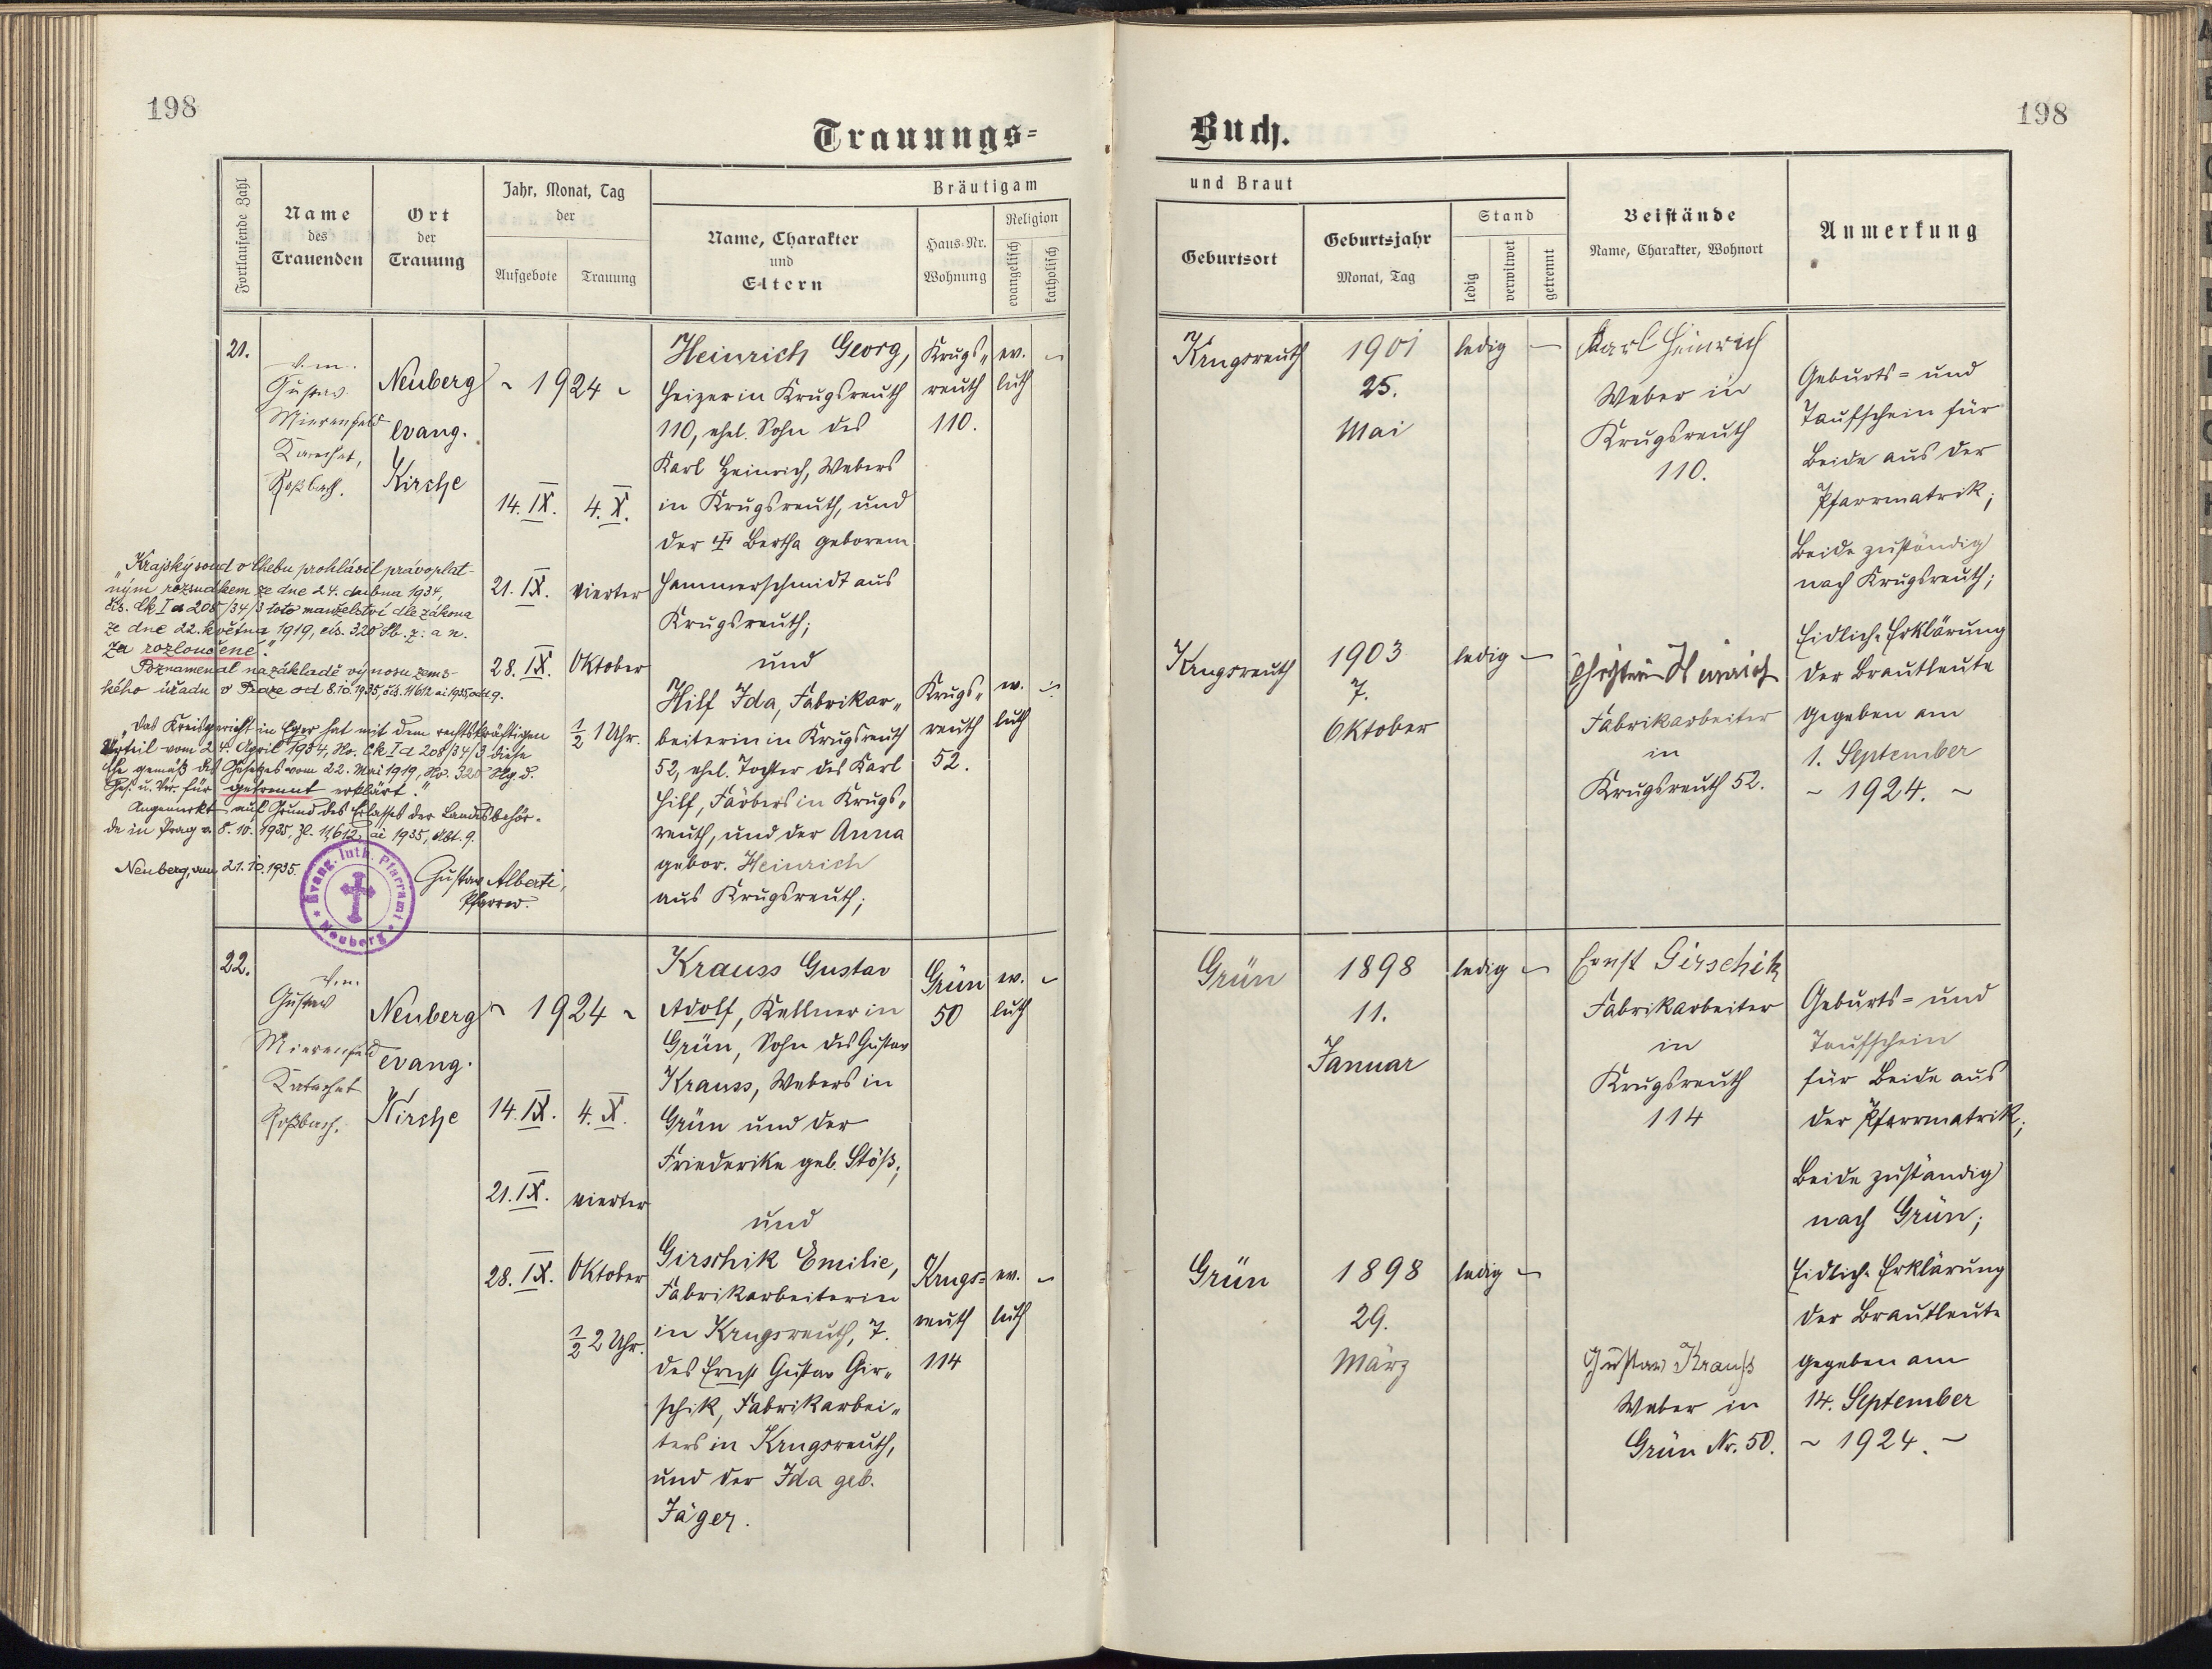 198
198
Trauungs=
Buch.
Fortlaufende Zahl
Name
des
Trauenden
Ort
der
Trauung
Jahr, Monat, Tag
der
Aufgebote
Trauung
Bräutigam
Name, Charakter
und
Eltern
Haus-Nr.
Wohnung
Religion
evangelisch
katholisch
und Braut
Geburtsort
Geburtsjahr
Monat, Tag
Stand
ledig
verwitwet
getrennt
Beistände
Name, Charakter, Wohnort
Anmerkung
21.
Gustav
Mierenfeld
Roßbach.
Neuberg
evang.
Kirche
~ 1924 ~
14. IX.
21. IX.
28. IX.
4. X.
vierter
Oktober
½ 1 Uhr.
Heinrich Georg,
Heizer in Krugsreuth
110, ehel. Sohn des
Karl Heinrich, Webers
in Krugsreuth, und
der Bertha geborem
Hammerschmidt aus
Krugsreuth;
und
Hilf Ida, Fabrikar„
beiterin in Krugsreuth
52, ehel. Tochter des Karl
Hilf, Färbers in Krugs„
reuth, und der Anna
gebor. Heinrich
aus Krugsreuth;
Krugs„
reuth
110.
ev.
luth
Krugs„
reuth
52.
ev.
luth
Krugsreuth
1901
25.
Mai
ledig
Karl Heinrich
Weber in
Krugsreuth
110.
Krugsreuth
1903
7.
Oktober
ledig
Heinrich
Fabrikarbeiter
in
Krugsreuth 52.
Geburts= und
Taufschein für
Beide aus der
Pfarrmatrik;
Beide zuständig
nach Krugsreuth;
Eidlich. Erklärung
der Brautleute
gegeben am
1. September
~ 1924. ~
„Krajský soud v Chebu prohlásil právoplat-
ným rozsudkem ze dne 24. dubna 1934,
čís. Ck I a 208/34/3 toto manželství dle zákona
ze dne 22. května 1919, čís. 320 Sb. z. a n.
za rozloučené."
Poznamenal na základě výnosu zems-
kého úřadu v Praze od 8.10.1935, čís. 11612 ai 1935, odd. 9.
„Das Kreisgericht in Eger hat mit dem rechtskräftigen
Urteil vom 24. April 1934, No. Ck I d 208/34/3 diese
Ehe gemäß des Gesetzes vom 22. Mai 1919, No. 320 Slg. d.
Ges. u. Ver. für getrennt erklärt."
Angemerkt auf Grund des Erlasses der Landesbehör-
de in Prag v. 8. 10. 1935, Zl. 11,612 ai 1935, Abt. 9.
Neuberg, am 21.10.1935.
Gustav Alberti,
Pfarrer.
Evang. luth. Pfarramt
Neuberg
22.
Gustav
Mierenfeld
Roßbach.
Neuberg
evang.
Kirche
~ 1924 ~
14. IX.
21. IX.
28. IX.
4. X.
vierter
Oktober
½ 2 Uhr.
Krauss Gustav
Adolf, Kellner in
Grün, Sohn des Gustav
Krauss, Webers in
Grün und der
Friederike geb. Stöß;
und
Girschik Emilie,
Fabrikarbeiterin
in Krugsreuth, T.
des Ernst Gustav Gir„
schik, Fabrikarbei„
ters in Krugsreuth,
und der Ida geb.
Jäger.
Grün
50
ev.
luth
Krugs=
reuth
114
ev.
luth
Grün
1898
11.
Januar
ledig
Ernst Girschik
Fabrikarbeiter
in
Krugsreuth
114
Grün
1898
29.
März
ledig
Gustav Krauß
Weber in
Grün Nr. 50.
Geburts= und
Taufschein
für Beide aus
der Pfarrmatrik;
Beide zuständig
nach Grün;
Eidlich. Erklärung
der Brautleute
gegeben am
14. September
~ 1924. ~